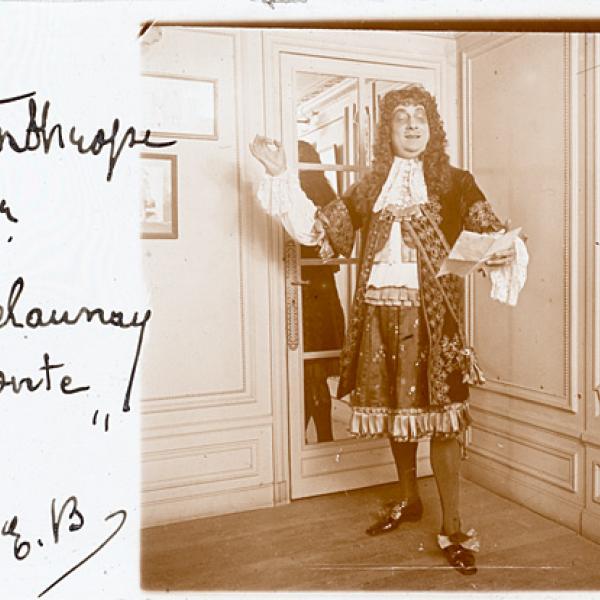 nthrope
elaunay
onte "
E. B